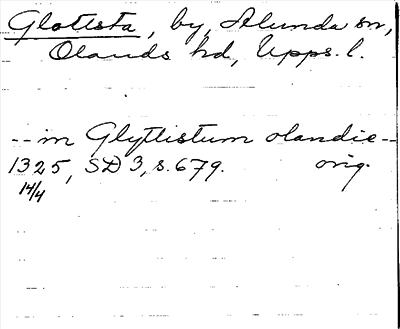 Glotista, by, Alunda sn,
Olands hd, Upps. l.
-- in Glytlistum olandie --
1325, SD 3, s. 679. orig.
14/4